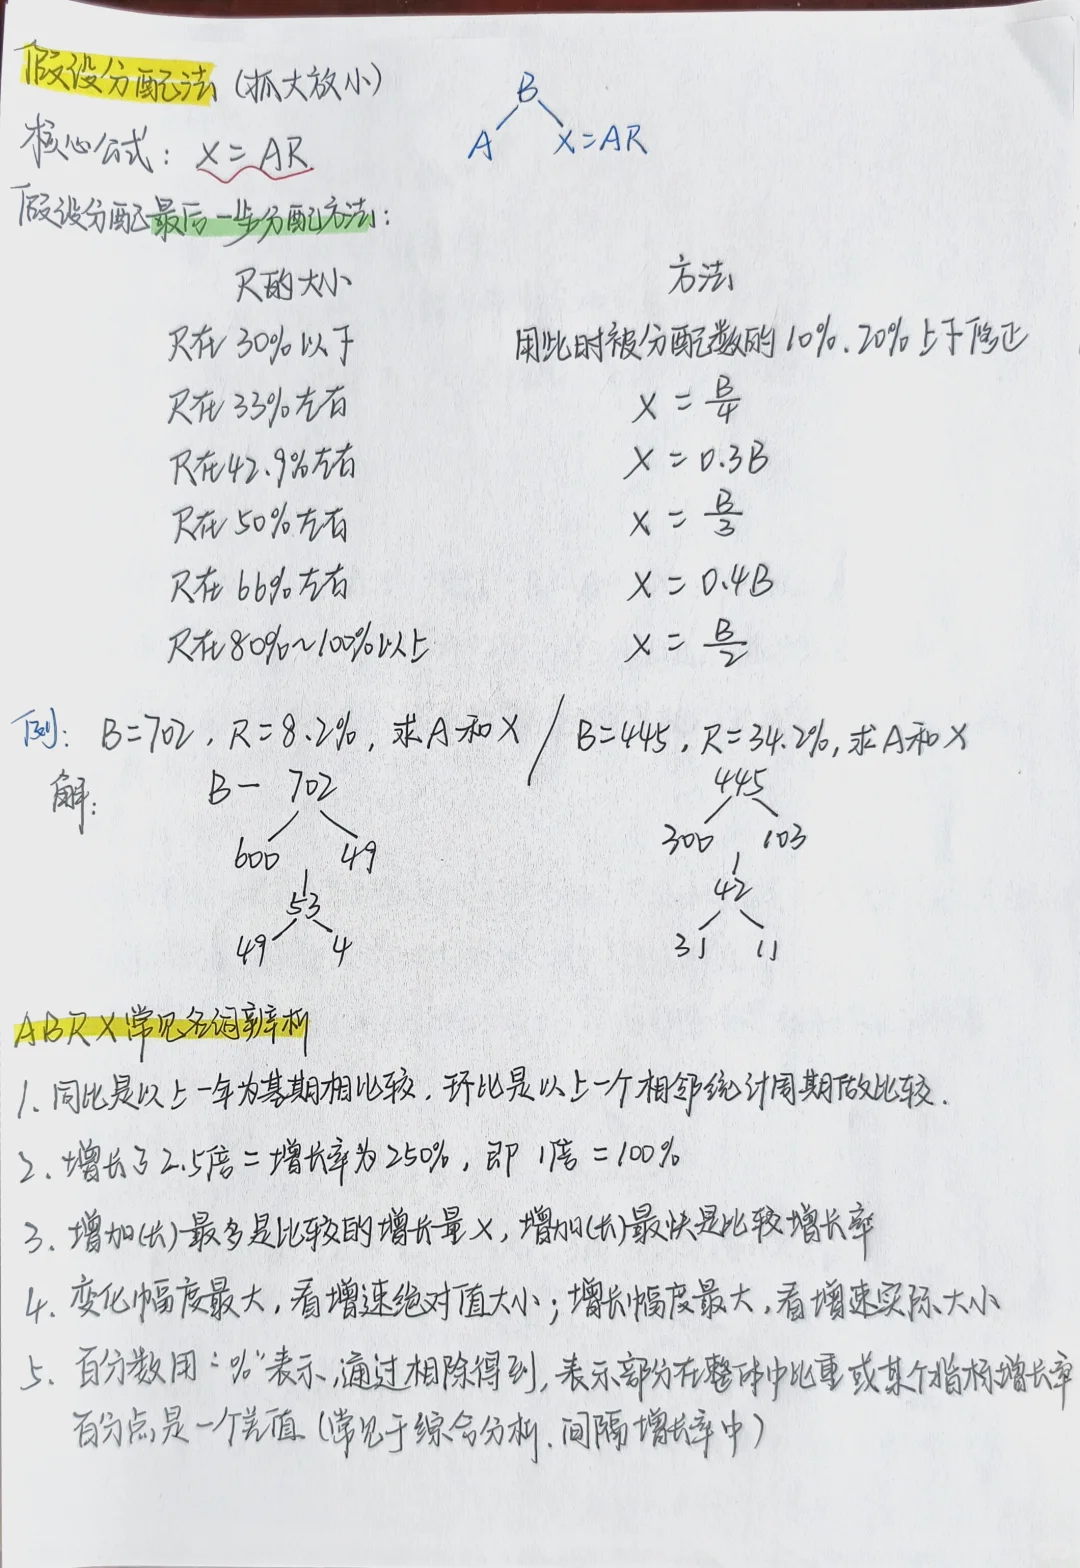 假设分配法（抓大放小）
B
A X=AR
核心公式：X=AR
假设分配最后一步分配方法：
R的大小 方法
R在30%以下 用此时被分配数的10%、20%上下修正
R在33%左右 X=B/4
R在42.9%左右 X=0.3B
R在50%左右 X=B/3
R在66%左右 X=0.4B
R在80%~100%以上 X=B/2
例：B=702，R=8.2%，求A和X / B=445，R=34.2%，求A和X
解：B— 702 445
600 49 300 103
53 42
49 4 31 11
ABRX常见名词辨析
1、同比是以上一年为基期相比较，环比是以上一个相邻统计周期做比较.
2、增长了2.5倍=增长率为250%，即1倍=100%
3、增加(长)最多是比较的增长量X，增加(长)最快是比较增长率
4、变化幅度最大，看增速绝对值大小；增长幅度最大，看增速实际大小
5、百分数用“%”表示，通过相除得到，表示部分在整体中比重或某个指标增长率
百分点是一个差值（常见于综合分析、间隔增长率中）